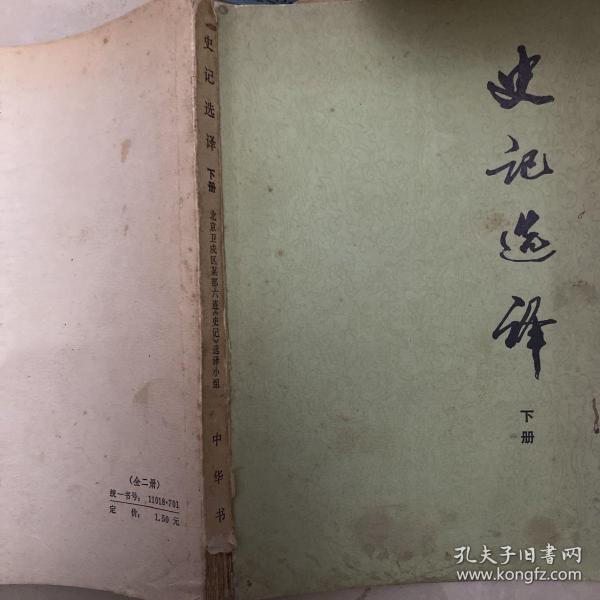 史记选译
下册
史记选译 下册 北京卫戍区某部六连《史记》选译小组 中华书
(全二册)
统一书号：11018·701
定价：1.50元
孔夫子旧书网
www.kongfz.com